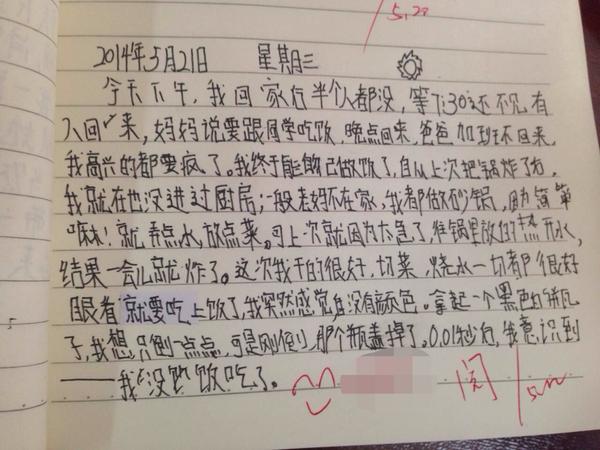 5.20
2014年5月21日 星期三
今天下午,我回家后半个人都没,等了30还不见有
人回来,妈妈说要跟同学吃饭,晚点回来,爸爸加班不回来,
我高兴的都要疯了。我终于能自己做饭了,自从上次把锅炸了后,
我就在也没进过厨房;一般老妈不在家,我都做砂锅,因为简单
嘛!就弄点水,放点菜。可上次就因为太急了,往锅里放的热开水,
结果一会儿就炸了。这次我干的很好,切菜、烧水一切都很好
眼看就要吃上饭了,我突然感觉没有颜色。拿起一个黑色的瓶
子,我想只倒一点点,可是刚倒,那个瓶盖掉了。0.01秒后,我意识到
——我没饭吃了。
阅